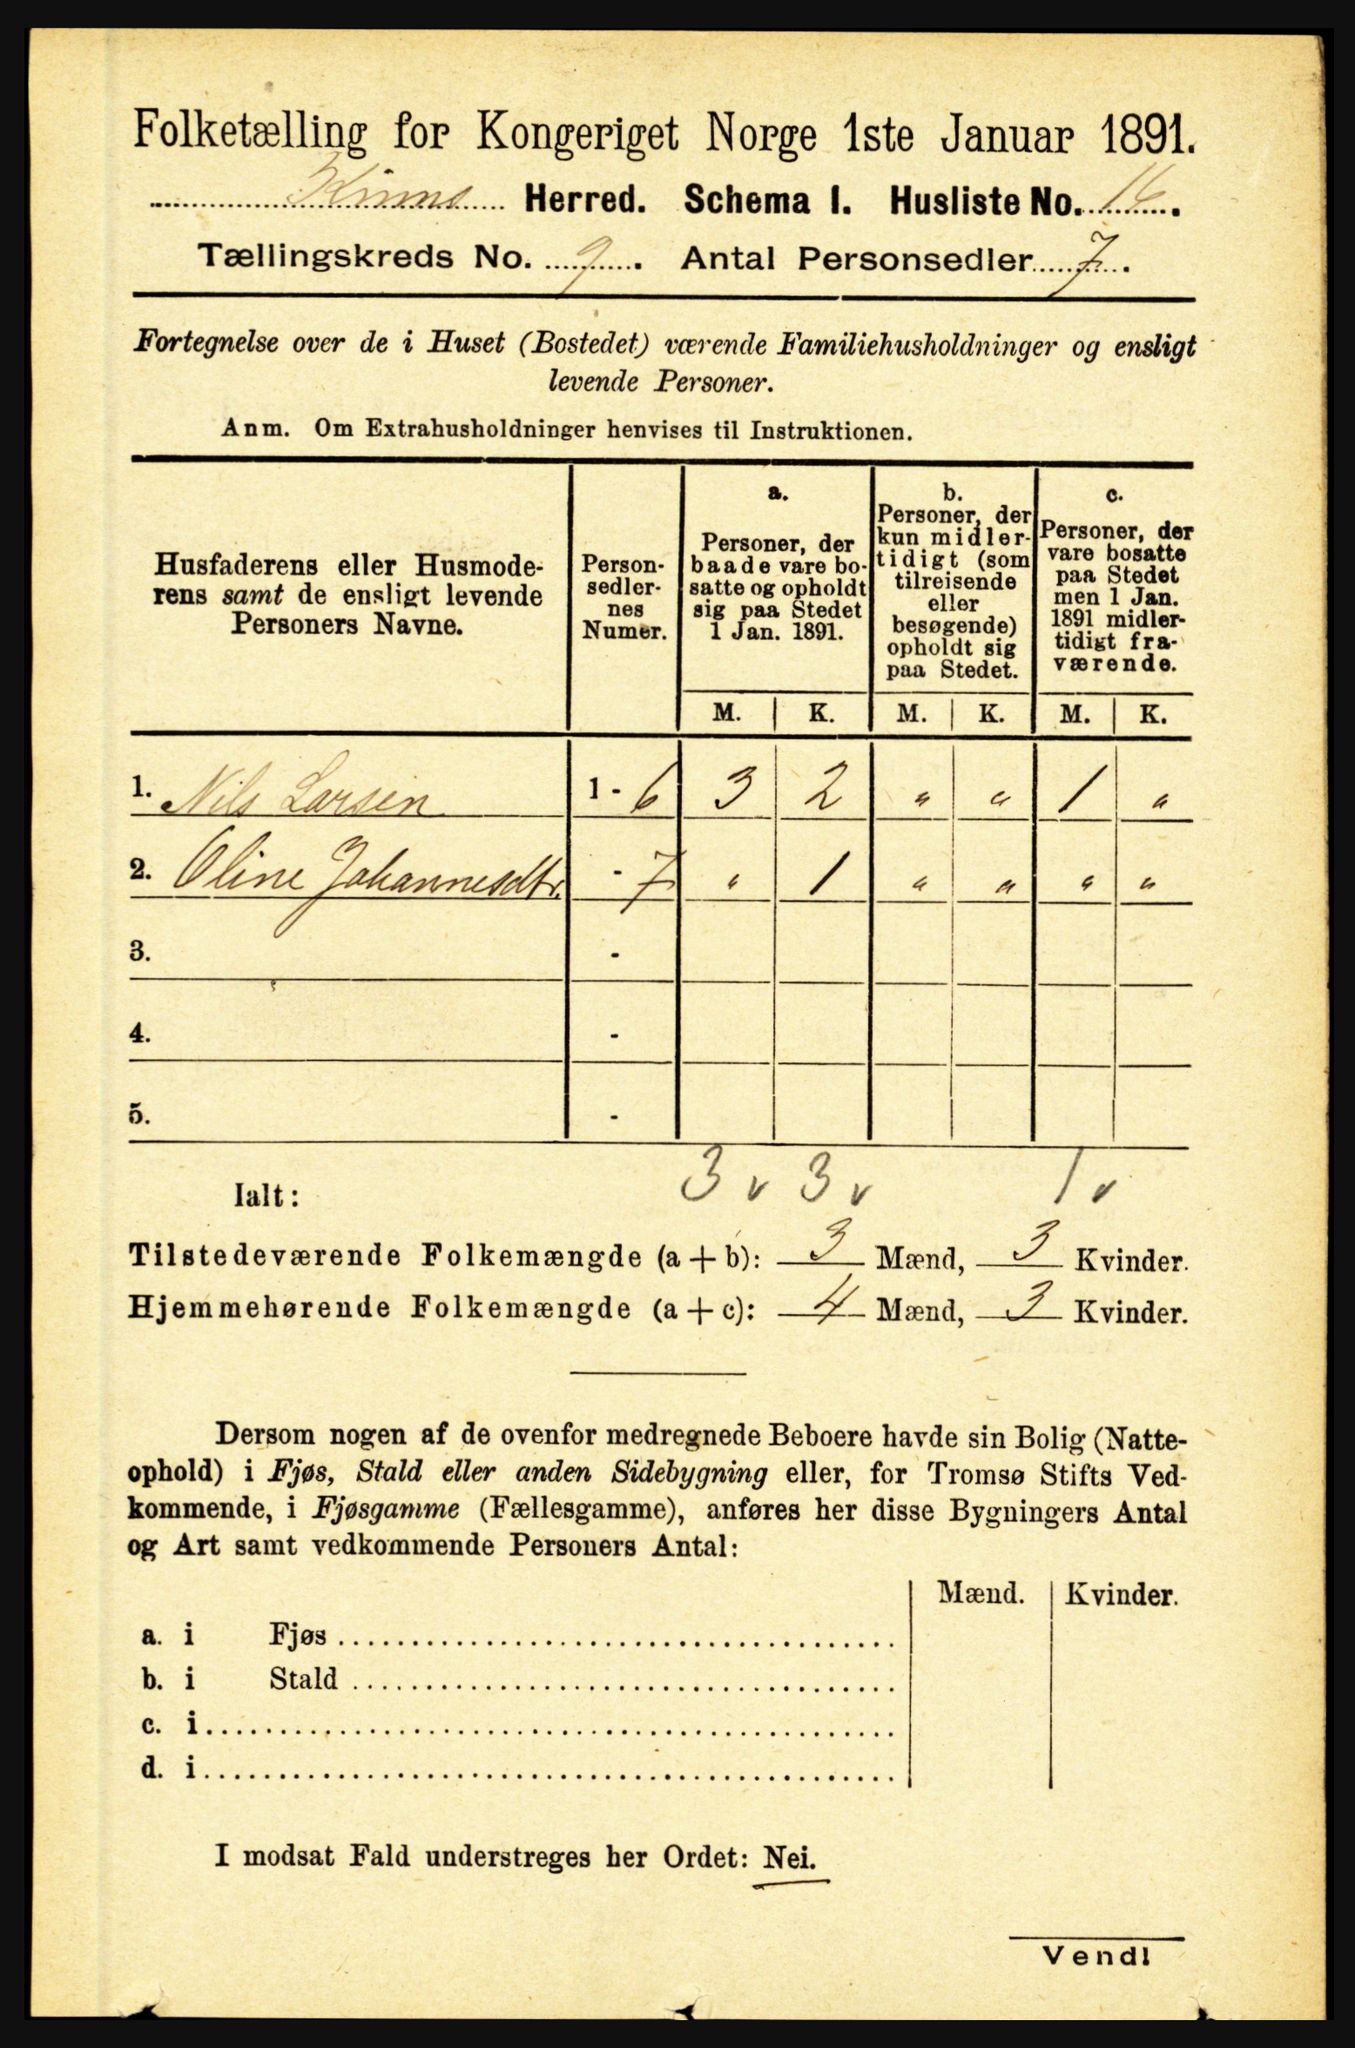 Folketælling for Kongeriget Norge 1ste Januar 1891.
Kinns Herred. Schema I. Husliste No. 16.
Tællingskreds No. 9. Antal Personsedler 7.
Fortegnelse over de i Huset (Bostedet) værende Familiehusholdninger og ensligt
levende Personer.
Anm. Om Extrahusholdninger henvises til Instruktionen.
Husfaderens eller Husmode-
rens samt de ensligt levende
Personers Navne.
Person-
sedler-
nes
Numer.
a.
Personer, der
baade vare bo-
satte og opholdt
sig paa Stedet
1 Jan. 1891.
b.
Personer, der
kun midler-
tidigt (som
tilreisende
eller
besøgende)
opholdt sig
paa Stedet.
c.
Personer, der
vare bosatte
paa Stedet
men 1 Jan.
1891 midler-
tidigt fra-
værende.
M. K. M. K. M. K.
1. Nils Larsen 1 - 6 3 2 " " 1 "
2. Oline Johannesdtr. - 7 " 1 " " " "
3. -
4. -
5. -
Ialt: 3 v 3 v 1 v
Tilstedeværende Folkemængde (a + b): 3 Mænd, 3 Kvinder.
Hjemmehørende Folkemængde (a + c): 4 Mænd, 3 Kvinder.
Dersom nogen af de ovenfor medregnede Beboere havde sin Bolig (Natte-
ophold) i Fjøs, Stald eller anden Sidebygning eller, for Tromsø Stifts Ved-
kommende, i Fjøsgamme (Fællesgamme), anføres her disse Bygningers Antal
og Art samt vedkommende Personers Antal:
Mænd. Kvinder.
a. i Fjøs
b. i Stald
c. i
d. i
I modsat Fald understreges her Ordet: Nei.
Vend!